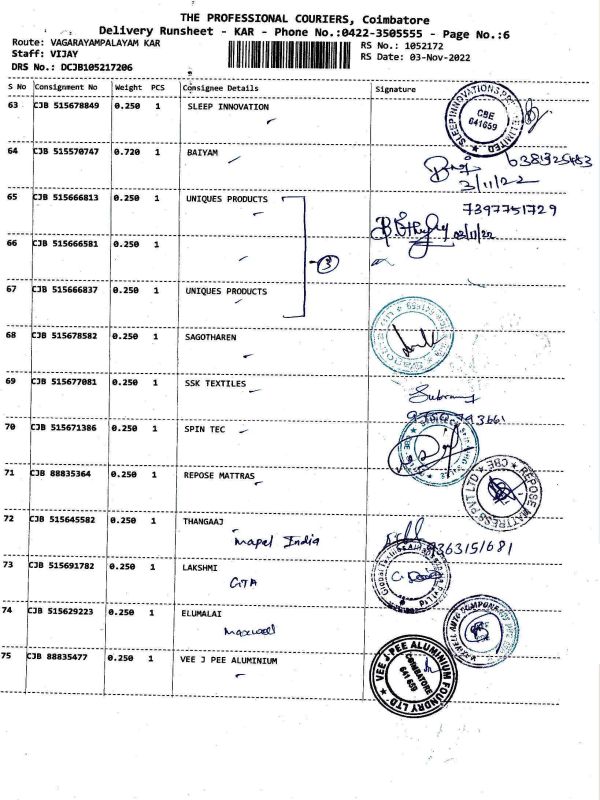 THE PROFESSIONAL COURIERS, Coimbatore
Delivery Runsheet - KAR - Phone No.:0422-3505555 - Page No.:6
Route: VAGARAYAMPALAYAM KAR
Staff: VIJAY
DRS No.: DCJB105217206
RS No.: 1052172
RS Date: 03-Nov-2022
S No Consignment No Weight PCS Consignee Details Signature
63 CJB 515678849 0.250 1 SLEEP INNOVATION
CBE
641659
64 CJB 515570747 0.720 1 BAIYAM
3/11/22
65 CJB 515666813 0.250 1 UNIQUES PRODUCTS
7397751729
03/11/22
66 CJB 515666581 0.250 1
3
67 CJB 515666837 0.250 1 UNIQUES PRODUCTS
68 CJB 515678582 0.250 1 SAGOTHAREN
69 CJB 515677081 0.250 1 SSK TEXTILES
70 CJB 515671386 0.250 1 SPIN TEC
71 CJB 88835364 0.250 1 REPOSE MATTRAS
REPOSE MATTRESS PVT LTD ★ CBE ★
72 CJB 515645582 0.250 1 THANGAAJ
Mapel India
9363151681
73 CJB 515691782 0.250 1 LAKSHMI
GTA
74 CJB 515629223 0.250 1 ELUMALAI
Maxwell
75 CJB 88835477 0.250 1 VEE J PEE ALUMINIUM
VEE J PEE ALUMINIUM FOUNDRY LTD ★
COIMBATORE
641 659